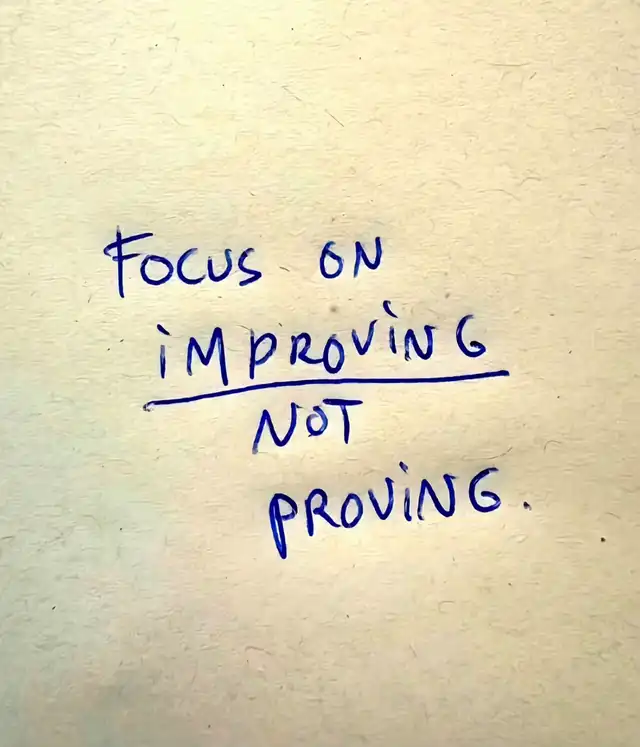 FOCUS ON
iMPROViNG
NOT
PROViNG.